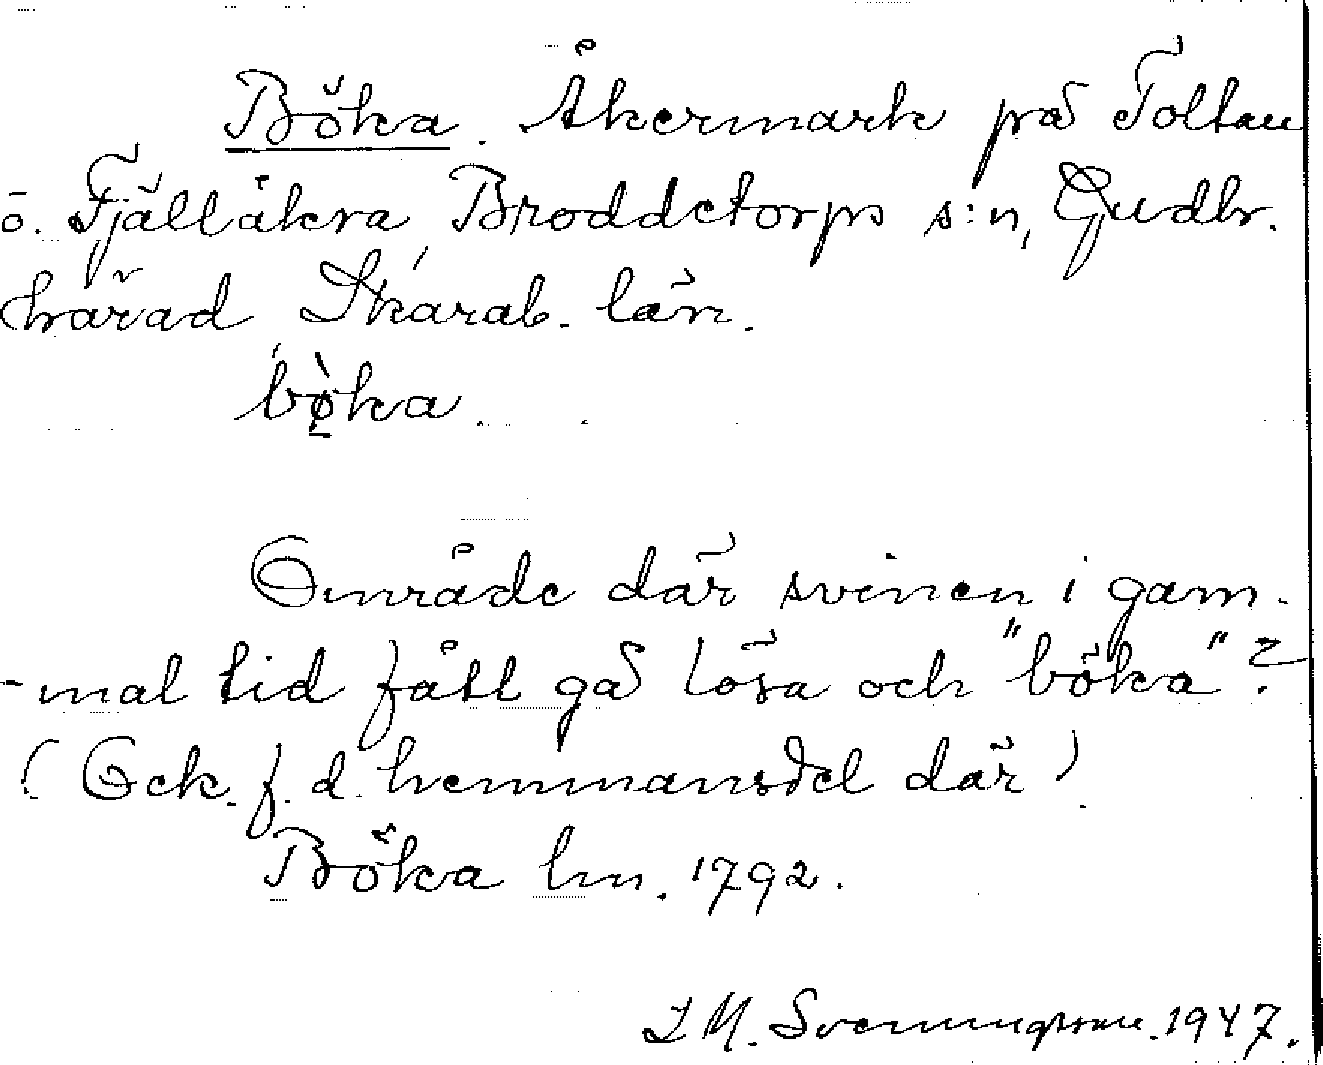 Böka. Åkermark på Toltan
ö. Fjällåkra, Broddetorps s:n, Gudhr.
härad, Skarab. län.
bø̀ka
Område där svinen i gam-
-mal tid fått gå lösa och "böka"?
(Ock. f. d. hemmansdel där)
Böka hn. 1792.
I M. Svenungsson. 1947.